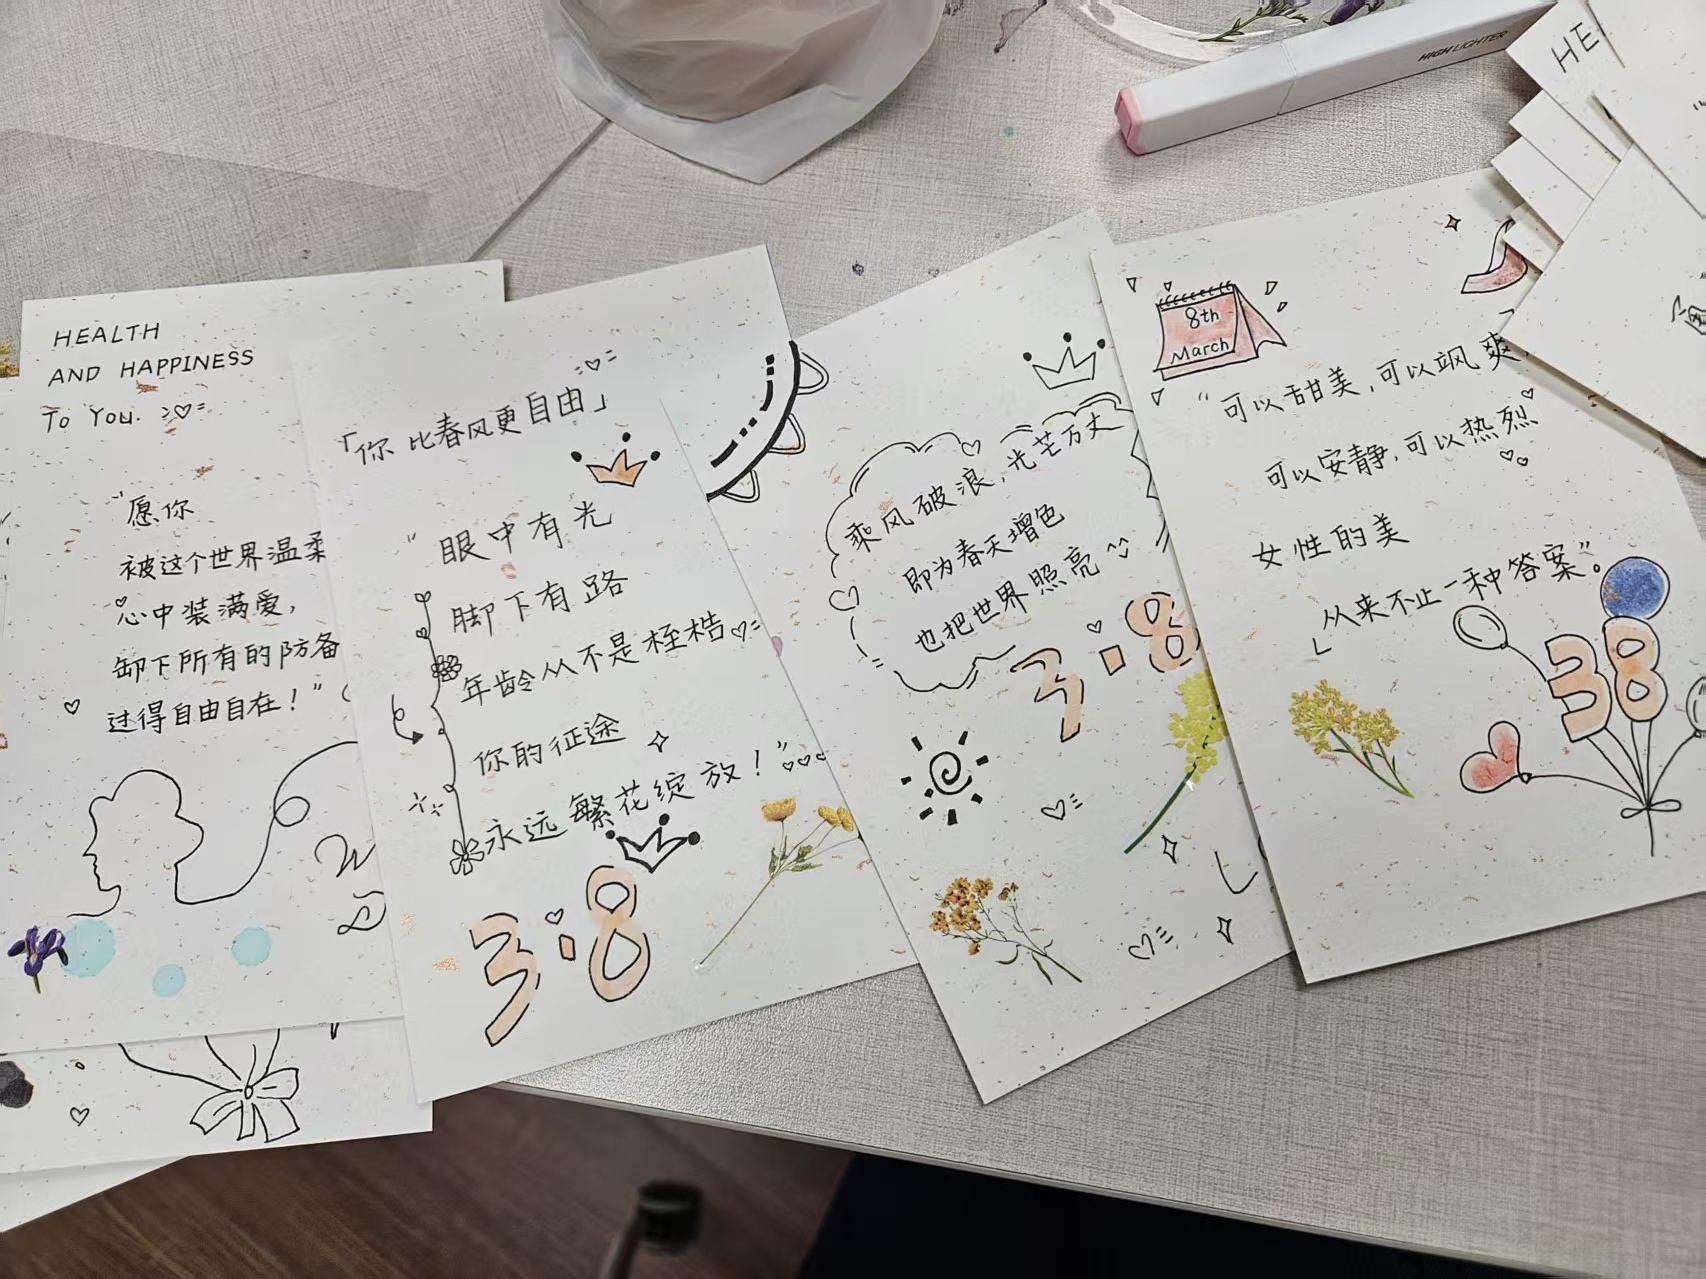 HIGH LIGHTER
HE
HEALTH
AND HAPPINESS
To You.
"愿你
被这个世界温柔
心中装满爱,
卸下所有的防备
过得自由自在!"
「你比春风更自由」
"眼中有光
脚下有路
年龄从不是桎梏
你的征途
永远繁花绽放!"
3.8
乘风破浪,光芒万丈
即为春天增色
也把世界照亮
3.8
8th
March
"可以甜美,可以飒爽,
可以安静,可以热烈
女性的美
从来不止一种答案"。
38